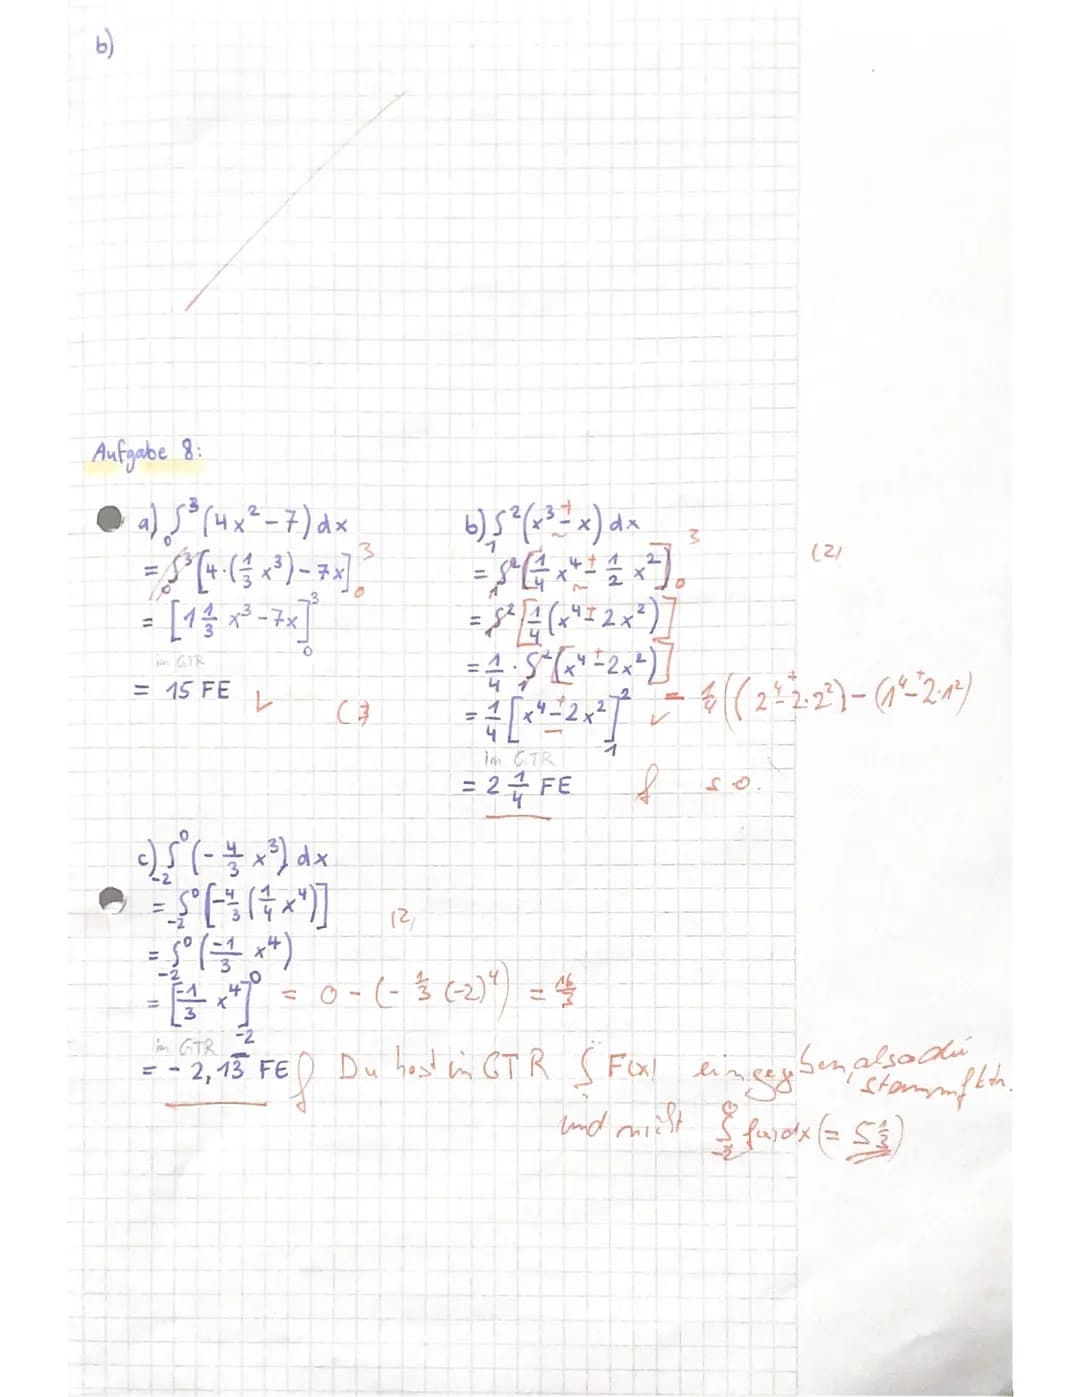 b)
Aufgabe 8:
a) ₀∫³ (4x² - 7) dx
= ₀∫³ [4·(1/3 x³) - 7x]₀³
= [1 1/3 x³ - 7x]₀³
im GTR
= 15 FE ✓ (3
b) ₁∫² (x³ ± x) dx
= ₁∫² [1/4 x⁴ ± 1/2 x²]₀³ (2)
= ₁∫² [1/4 (x⁴ ± 2x²)]
= 1/4 · ₁∫² [(x⁴ ± 2x²)]
= 1/4 [x⁴ ± 2x²]₁² ✓ = 1/4 ((2⁴ ± 2·2²) - (1⁴ ± 2·1²)
Im GTR
= 2 1/4 FE f s.o.
c) ₋₂∫⁰ (-4/3 x³) dx
= ₋₂∫⁰ [-4/3 (1/4 x⁴)] (2)
= ₋₂∫⁰ (-1/3 x⁴)
= [-1/3 x⁴]₋₂⁰ = 0 - (-1/3 (-2)⁴) = 16/3
im GTR
= -2,13 FE f Du hast in GTR ∫ F(x) eingegeben, also die
Stammfktn.
und nicht ₋₂∫⁰ f(x)dx (= 5 1/3)